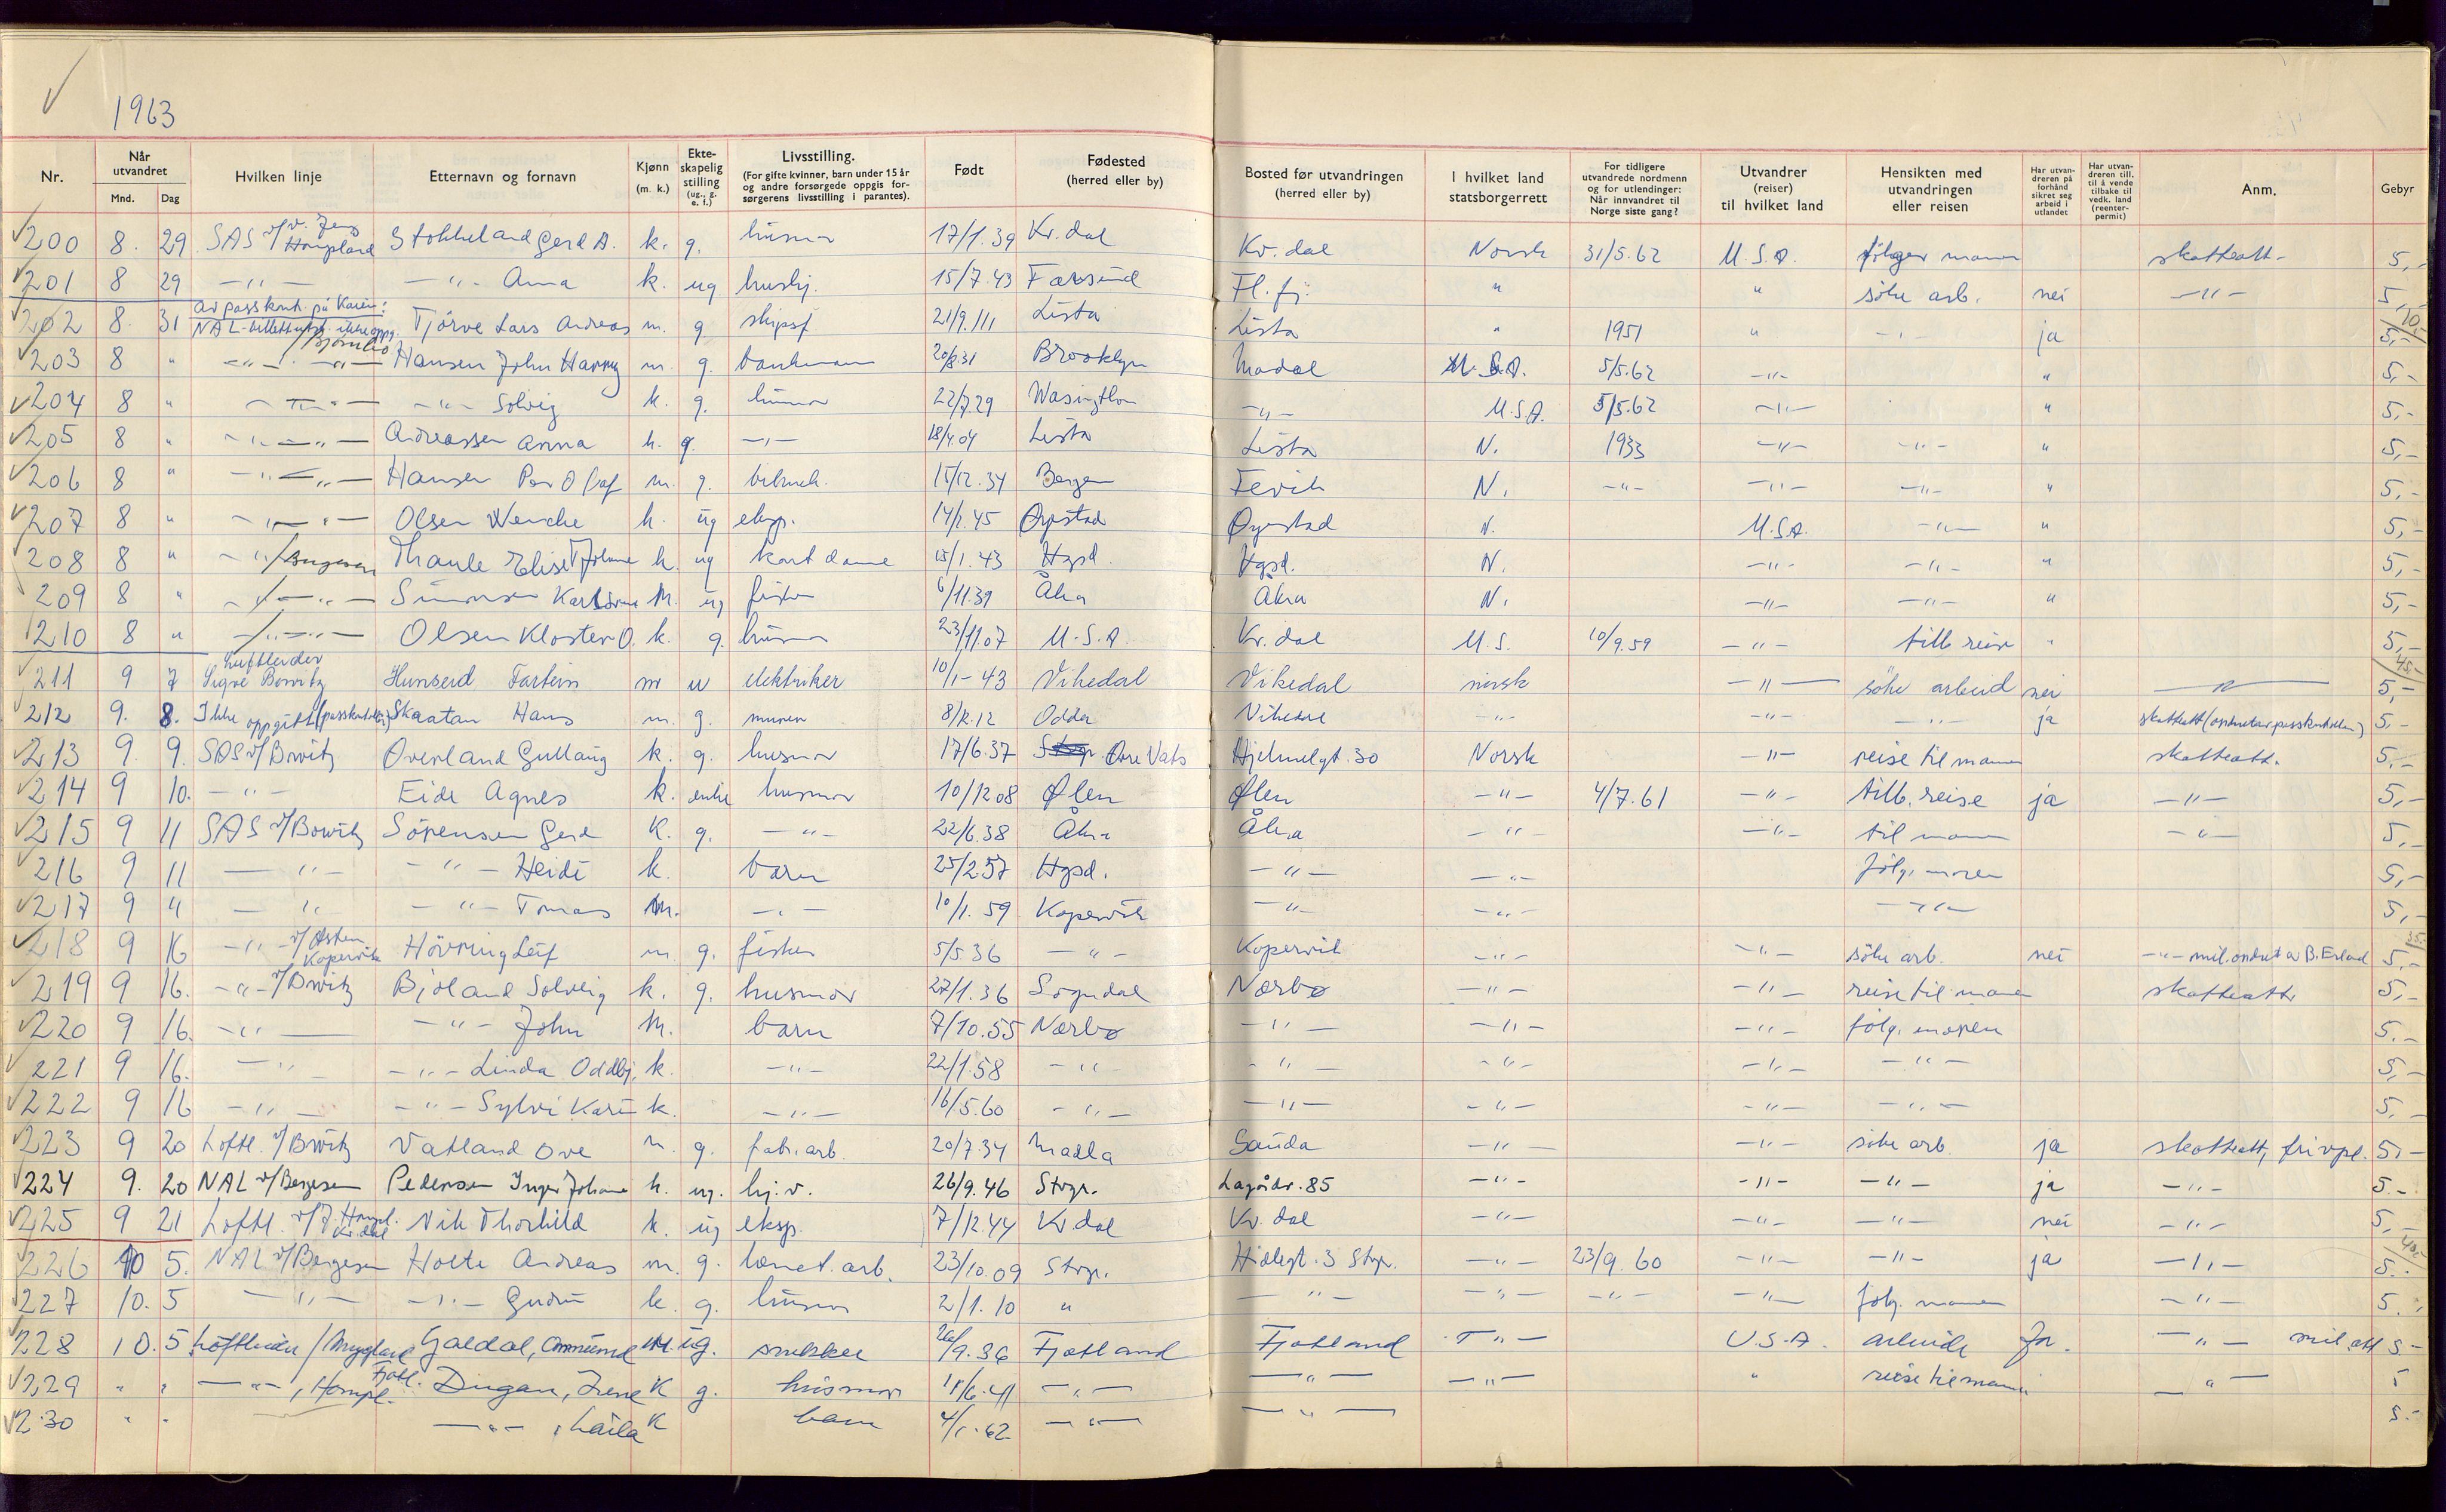 1963
Nr. Når utvandret Mnd. Dag Hvilken linje Etternavn og fornavn Kjønn (m. k.) Ekteskapelig stilling (ug., g. e. f.) Livsstilling. (For gifte kvinner, barn under 15 år og andre forsørgede oppgis forsørgerens livsstilling i parantes). Født Fødested (herred eller by) Bosted før utvandringen (herred eller by) I hvilket land statsborgerrett For tidligere utvandrede nordmenn og for utlendinger: Når innvandret til Norge siste gang? Utvandrer (reiser) til hvilket land Hensikten med utvandringen eller reisen Har utvandreren på forhånd sikret seg arbeid i utlandet Har utvandreren till. til å vende tilbake til vedk. land (reenterpermit) Anm. Gebyr
200 8. 29. SAS v/ Stokkeland Gerd A. k. g. husmor 17/1.39 Kv. dal Kv. dal Norsk 31/5.62 U.S.A. følger mannen skatteatt. 5,-
201 8 29 -"- -"- Anna k. ug hushj. 15/7.43 Farsund Fl. fj. " " søke arb. nei -"- 5,-
202 8. 31 Av passkontr. på Karm: NAL-billettutst. ikke oppg. Tjörve Lars Andreas m. g skipsf 21/9.111 Lista Lista " 1951 " -"- ja 5,-
203 8 " -"- -"- Hansen John Harry m. g. 20/8.31 Brooklyn U.S.A. 5/5.62 -"- " 5,-
204 8 " -"- -"- Solveig k. g. husmor 22/7.29 Wasington -"- U.S.A. 5/5.62 -"- " 5,-
205 8 " -"- -"- Andreassen Anna k. g. -"- 18/4.04 Lista Lista N. 1933 -"- -"- " 5,-
206 8 " -"- -"- Hansen Per Olaf m. g. bilmek. 15/12.34 Bergen Fevik N. -"- -"- -"- " 5,-
207 8 " -"- -"- Olsen Wenche k. ug eksp. 14/2.45 Øyestad Øyestad N. U.S.A. -"- " 5,-
208 8 " -"- /Bergesen Thaule Elise k. ug kont dame 15/1.43 Hgsd. Hgsd. N. -"- -"- " 5,-
209 8 " -"- -"- Simonsen M. ug fisker 6/11.39 Åkra Åkra N. -"- -"- " 5,-
210 8 " -"- -"- Olsen Kloster O. k. g. husmor 23/11 07 U.S.A. Kv. dal U.S. 10/9.59 -"- tilb. reise " 5,-
211 9 7 Loftleider Sigvl Bowitz Hunserd Tarfein m u elektriker 10/1-43 Vikedal Vikedal norsk -"- søke arbeid nei -"- 5,-
212 9. 8. Ikke oppgitt Skaatan Hans m. g. murer 8/12.12 Odda Vikedal -"- -"- -"- ja 5,-
213 9. 9. SAS v/Bowitz Øverland Gullaug k. g. husmor 17/6.37 Øvre Vats Hjelmelgt. 30 Norsk -"- reise til mannen skatteatt. 5,-
214 9 10. -"- Eide Agnes k. enke husmor 10/12 08 Ølen Ølen -"- 4/7.61 -"- tilb. reise ja -"- 5,-
215 9 11 SAS v/Bowitz Sörensen Gerd K. g. -"- 22/6.38 Åkra Åkra -"- -"- til mann -"- 5,-
216 9 11 -"- -"- Heidi k. barn 25/2.57 Hgsd. -"- -"- følg. moren 5,-
217 9 " -"- -"- Tomas M. -"- 10/1.59 Kopervik -"- -"- -"- 5,-
218 9 16 -"- v/Østen Kopervik Hövring Leif m. g. fisker 5/5 36 -"- Kopervik -"- -"- søke arb. nei -"- mil. ordnet av B. Erland 5,-
219 9 16. -"- v/Bowitz Bjöland Solveig k. g. husmor 27/1.36 Sogndal Nærbø -"- -"- reise til mannen skatteatt. 5,-
220 9 16. -"- -"- John M. barn 7/10.55 Nærbø -"- -"- -"- følg. moren 5.-
221 9 16. -"- -"- Linda Oddbj. k. -"- 22/1.58 -"- -"- -"- -"- -"- 5,-
222 9 16 -"- -"- Sylvi Karin k. -"- 16/5.60 -"- -"- -"- -"- -"- 5,-
223 9 20 Loftl. v/Bowitz Vatland Ove m. g. fabr. arb. 20/7.34 Madla Sauda -"- -"- søke arb. ja skatteatt, frivpl. 5,-
224 9. 20 NAL v/Bergesen Pedersen Inger Johanne k. ug. hj. v. 26/9.46 Stvgr. Lagårdv. 85 -"- -"- -"- ja -"- 5.-
225 9 21 Loftl. Vik Thorhild k. ug eksp. 7/12.44 Kv. dal Kv. dal -"- -"- -"- nei -"- 5,-
226 10 5. NAL v/Bergesen Holte Andreas m. g. 23/10.09 Stvgr. 3 Stvgr. -"- 23/9.60 -"- -"- ja -"- 5.-
227 10. 5 -"- -"- Gudrun k. g. husmor 2/1.10 " -"- -"- -"- -"- følg. mannen -"- 5.
228 10. 5 Loftleider Galdal, m. ug. snekker 26/9.36 Fjotland Fjotland -"- U.S.A. arbeide Ja. -"- mil. att 5-
229 " " -"-, Hompl. Dugan, Irene K g. husmor 11/6.41 -"- -"- -"- " reise til mann -"- 5
230 " " -"-, Laila K barn 4/1.62 -"- -"- 5.-